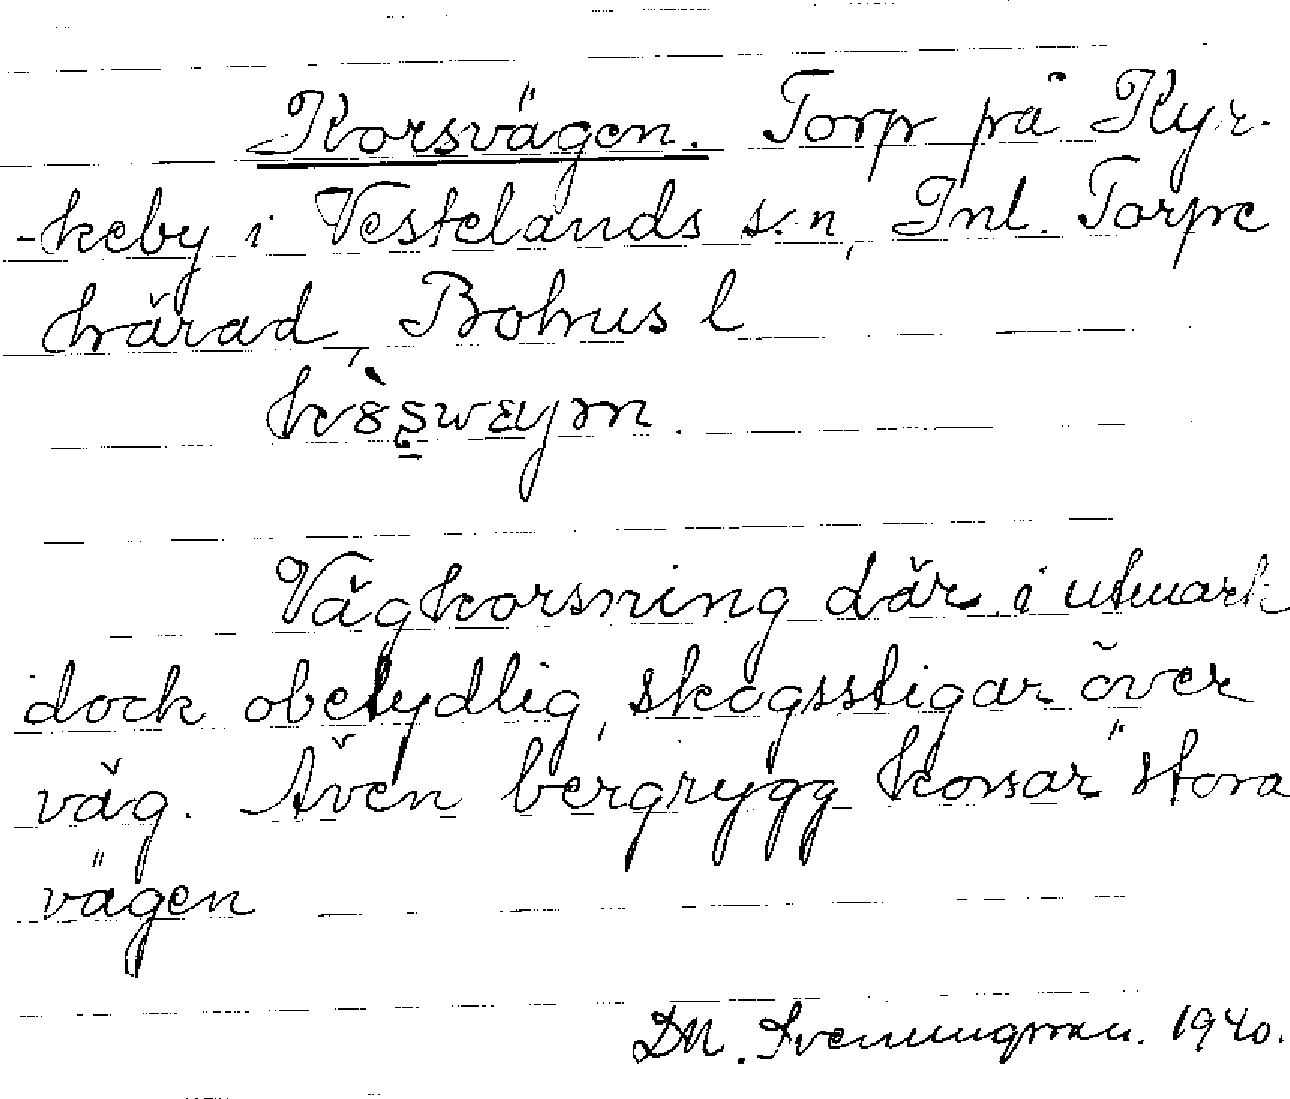 Korsvägen. Torp på Kyr-
-keby i Vestelands s:n, Inl. Torpe
härad, Bohus l
Vägkorsning där i utmark
dock obetydlig, skogsstigar över
väg. Även bergrygg "korsar" stora
vägen
DM. Svenningsson. 1940.